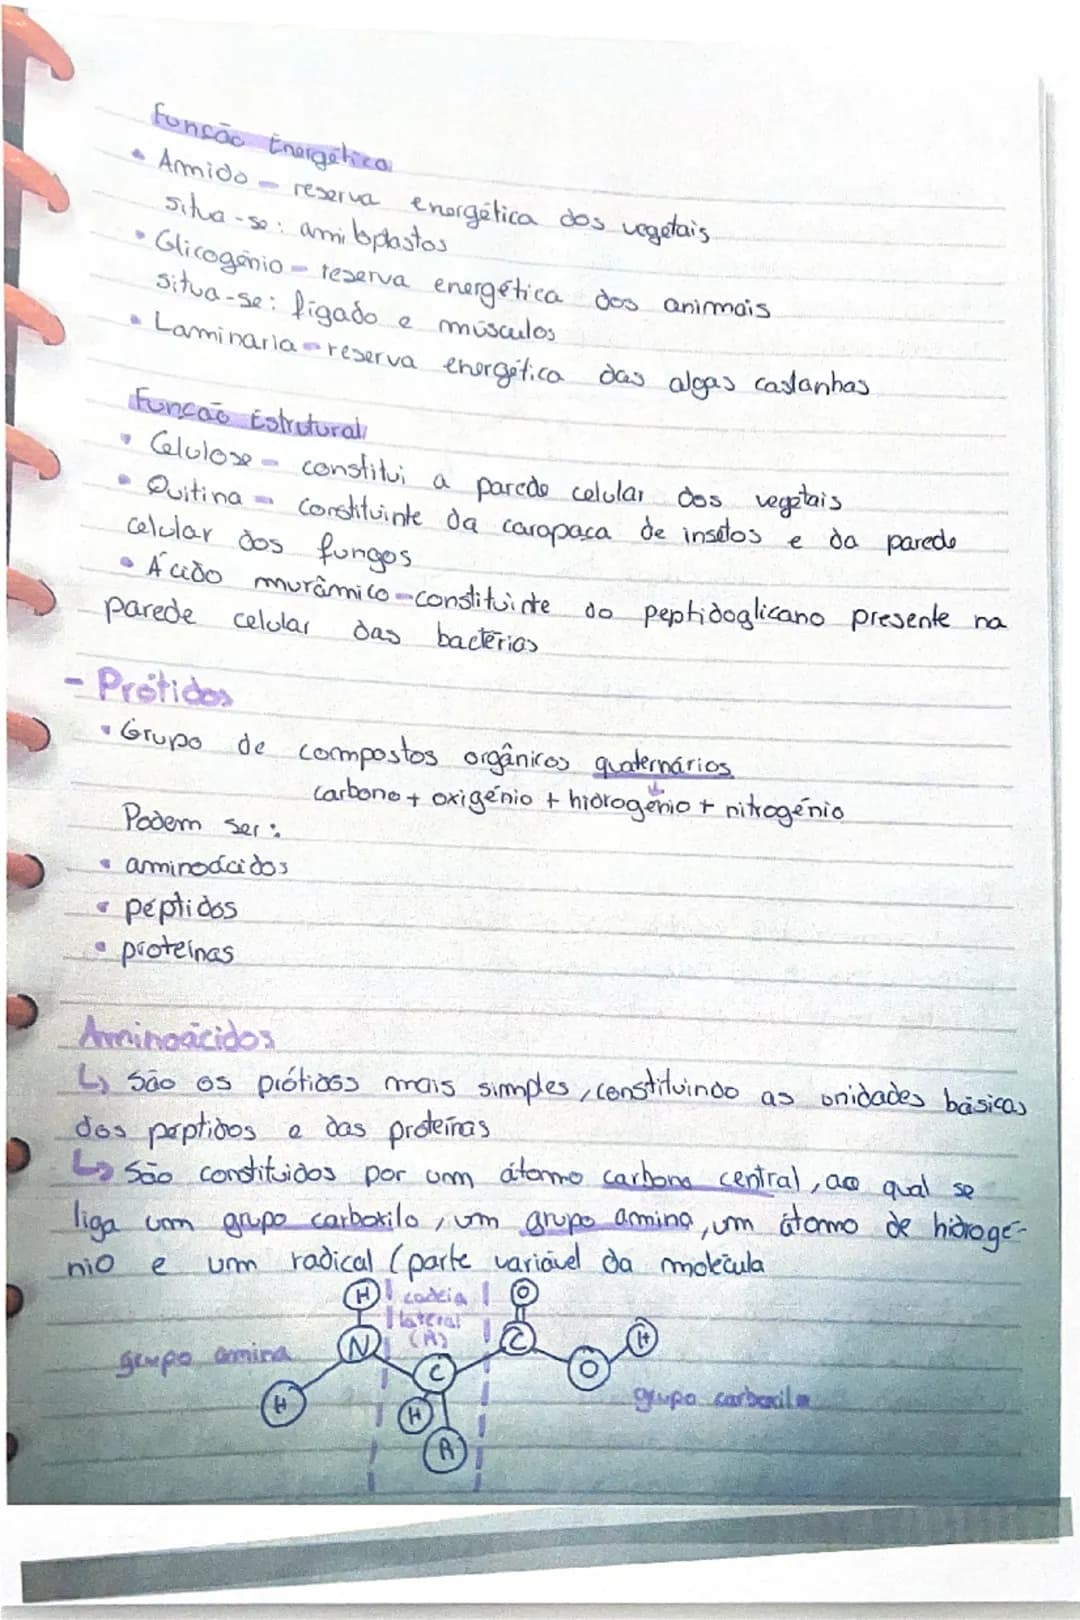 Função Energética
• Amido – reserva energética dos vegetais
situa-se: amiloplastos
• Glicogénio – reserva energética dos animais
situa-se: fígado e músculos
• Laminaria – reserva energética das algas castanhas
Função Estrutural
• Celulose – constitui a parede celular dos vegetais
• Quitina – constituinte da carapaça de insetos e da parede
celular dos fungos
• Ácido murâmico – constituinte do peptidoglicano presente na
parede celular das bactérias
- Prótidos
• Grupo de compostos orgânicos quaternários
↓
carbono + oxigénio + hidrogénio + nitrogénio
Podem ser:
• aminoácidos
• péptidos
• proteínas
Aminoácidos
↳ São os prótidos mais simples, constituindo as unidades básicas
dos péptidos e das proteínas
↳ São constituídos por um átomo carbono central, ao qual se
liga um grupo carboxilo, um grupo amina, um átomo de hidrogé-
nio e um radical (parte variável da molécula
H cadeia O
lateral
N (R) C H
grupo amina
C O
H H grupo carboxilo
R